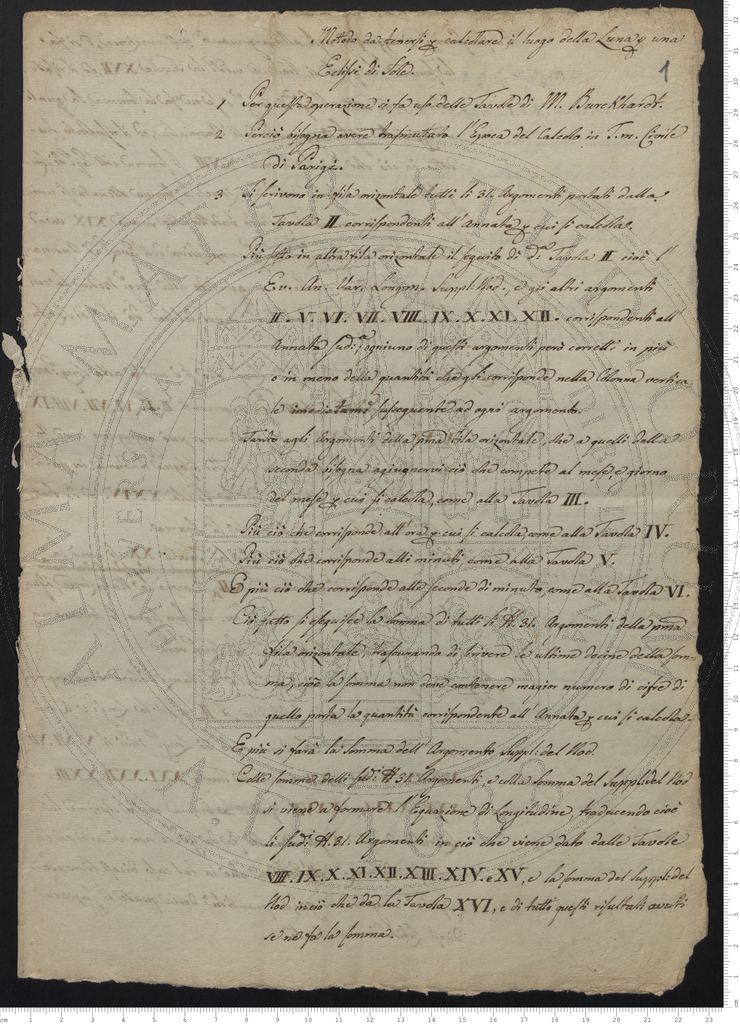 Metodo da tenersi p calcolare il luogo della Luna p una
Eclissi di Sole.
1
1 Per questa operazione si fa uso delle Tavole di M. Burckhardt.
2 Perciò bisogna avere trasmutato l'Epoca del Calcolo in T. m. Civile
di Parigi.
3 Si scrivono in fila orizontale tutti li 31. Argomenti portati dalla
Tavola II. corrispondenti all'Annata p cui si calcola.
Più sotto in altra fila orizontale il seguito di d.ª Tavola II cioè l'
Ev. An. Var. Longm. Suppl. Nod., e gli altri argomenti
II. V. VI. VII. VIII. IX. X. XI. XII. corrispondenti all'
Annata sud.ª, ogniuno di questi argomenti però corretti in più
o in meno della quantità che gli corrisponde nella Colonna vertica
le imediatam.e susseguente ad ogni argomento.
Tanto agli Argomenti della pma fila orizontale, che a quelli della
seconda bisogna agiugnervi ciò che compete al mese, e giorno
del mese p cui si calcola, come alla Tavola III.
Più ciò che corrisponde all'ora p cui si calcola, come alla Tavola IV.
Più ciò che corrisponde alli minuti, come alla Tavola V.
E più ciò che corrisponde alle seconde di minuto, come alla Tavola VI.
Ciò fatto si eseguisce la somma di tutti li N. 31. Argomenti della pma
fila orizontale, trascurando di scrivere le ultime decine della som-
ma, cioè la somma non deve contenere magior numero di cifre di
quello porta la quantità corrispondente all'Annata p cui si calcola.
E più si farà la somma dell'Argomento Suppl. del Nod.
Colle somme delli sud.i N. 31. Argomenti, e colla somma del Suppl. del Nod
si viene a formare l'Equazione di Longitudine, traducendo cioè
li sud.i N. 31. Argomenti in ciò che viene dato dalle Tavole
VIII. IX. X. XI. XII. XIII. XIV. e XV, e la somma del Suppl. del
Nod in ciò che da la Tavola XVI, e di tutti questi risultati avuti
se ne fa la somma.